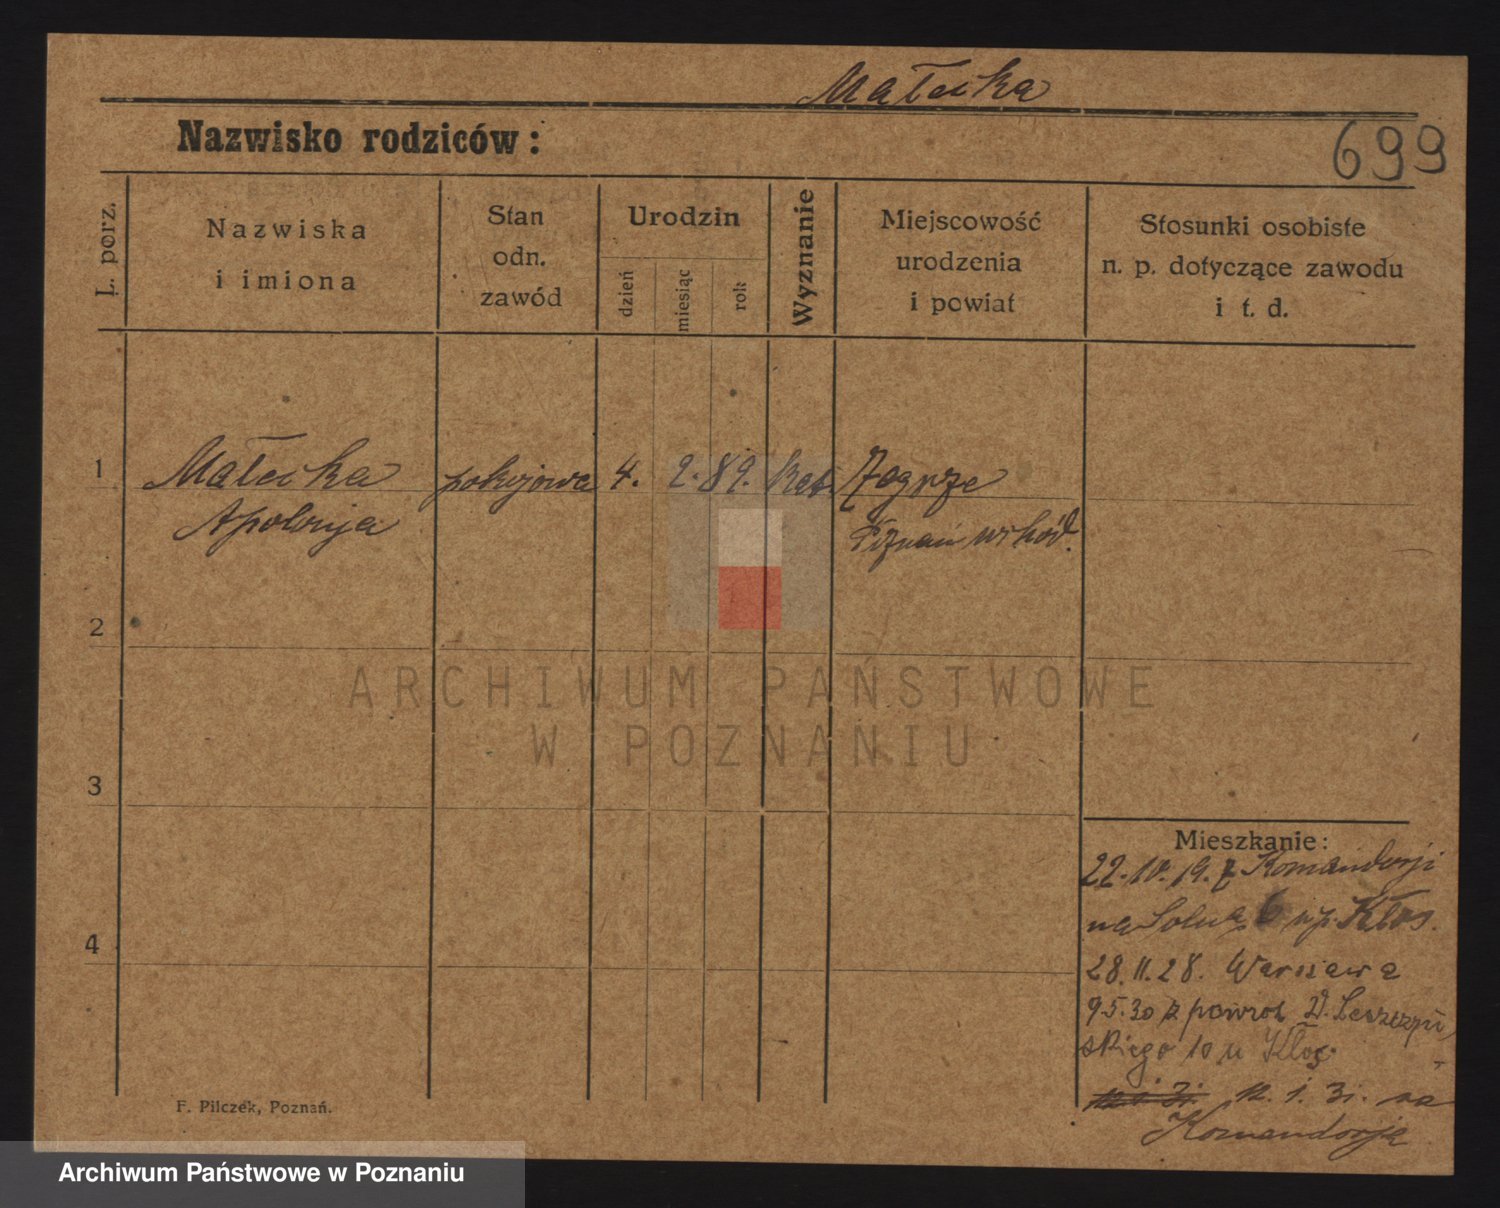 Małecka
Nazwisko rodziców:
699
L. porz.
Nazwiska
i imiona
Stan
odn.
zawód
Urodzin
dzień
miesiąc
rok
Wyznanie
Miejscowość
urodzenia
i powiat
Stosunki osobiste
n. p. dotyczące zawodu
i t. d.
1
Małecka
Apolonja
pokojowa
4. 2. 89.
kat
Zegrze
Poznań wschód.
2
3
4
ARCHIWUM PAŃSTWOWE
W POZNANIU
Mieszkanie:
22.10.19. z Komandorji
na Solna 6 np. Kłos.
28.11.28. Warszawa
9.5.30 z powrot
skiego 10 u Kłos.
12.1.31. 12.1.31. na
Komandorja
F. Pilczek, Poznań.
Archiwum Państwowe w Poznaniu